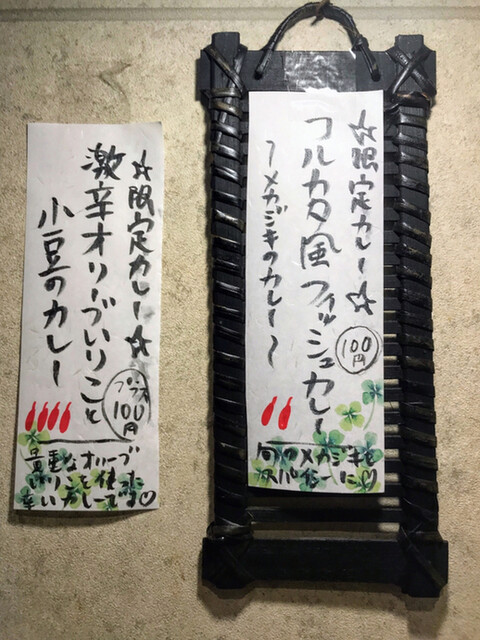 ☆限定カレー☆
コルカタ風フィッシュカレー
〜メカジキのカレー〜
100円
旬のメカジキを
スパイシーに♡
☆限定カレー☆
激辛オリーブいりこと
小豆のカレー
プラス
100円
貴重なオリーブ
いりこを使った
辛いカレーです♡